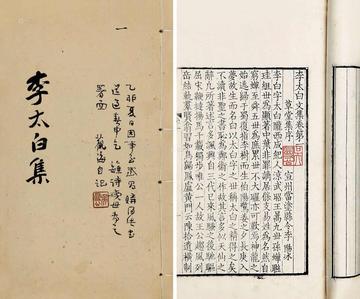 李太白集
一
李太白文集卷第一
草堂集序
宣州當塗縣令李陽冰
李白字太白隴西成紀人涼武昭王暠九世孫蟬聯
珪組世為顯著中葉非罪謫居條支易姓為名然自
窮蟬至舜五世為庶累世不大曜亦可歎焉神龍之
始逃歸于蜀復指李樹而生伯陽驚姜之夕長庚入
夢故生而名白以太白字之世稱太白之精得之矣
不讀非聖之書恥為鄭衛之作故其言多似天仙之
辭凡所著述言多諷興自三代已來風騷之後馳驅
屈宋鞭撻揚馬千載獨步唯公一人故王公趨風列
岳結軌羣賢翕習如鳥歸鳳盧黃門云陳拾遺橫制